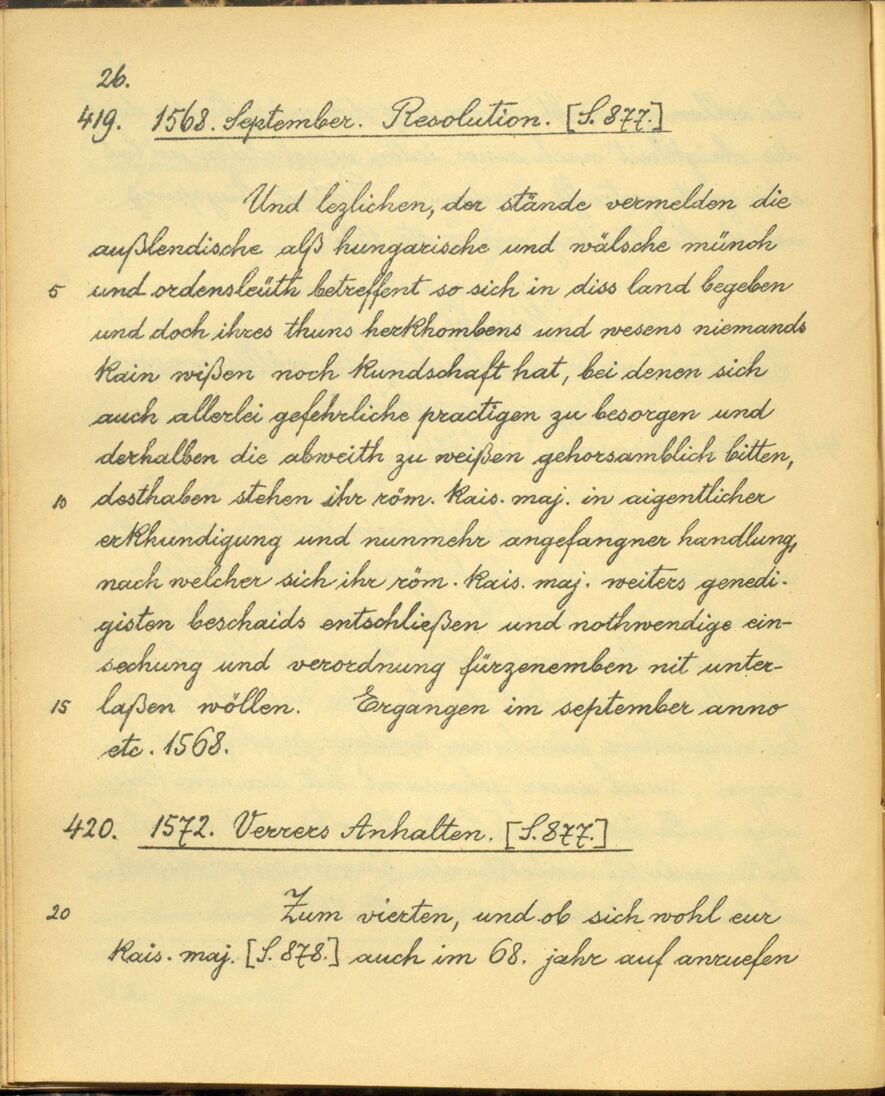 26.
419. 1568. September. Resolution. [S. 877.]
Und lezlichen, der stände vermelden die
außlendische alß hungarische und wälsche münch
5 und ordensleüth betreffent so sich in diss land begeben
und doch ihres thuns herkhombens und wesens niemands
kain wißen noch kundschaft hat, bei denen sich
auch allerlei gefehrliche practigen zu besorgen und
derhalben die abweith zu weißen gehorsamblich bitten,
10 desthaben stehen ihr röm. kais. maj. in aigentlicher
erkhundigung und nunmehr angefangner handlung,
nach welcher sich ihr röm. kais. maj. weiters genedi-
gisten beschaids entschließen und nothwendige ein-
sechung und verordnung fürzenemben nit unter-
15 laßen wöllen. Ergangen im september anno
etc. 1568.
420. 1572. Verrers Anhalten. [S. 877.]
20 Zum vierten, und ob sich wohl eur
kais. maj. [S. 878.] auch im 68. jahr auf anruefen